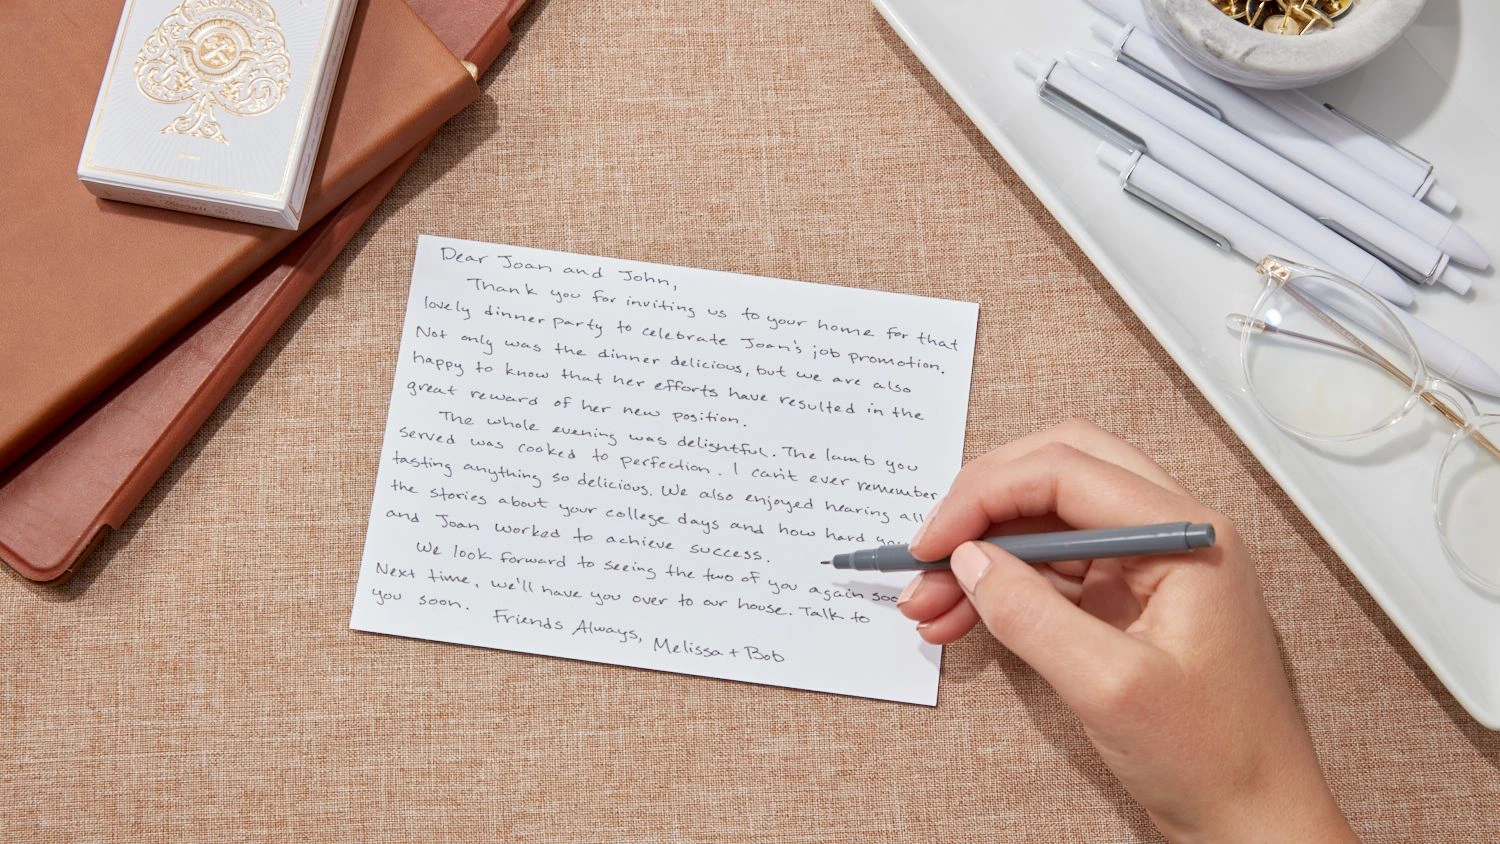 ARTISAN
Dear Joan and John,
Thank you for inviting us to your home for that
lovely dinner party to celebrate Joan's job promotion.
Not only was the dinner delicious, but we are also
happy to know that her efforts have resulted in the
great reward of her new position.
The whole evening was delightful. The lamb you
served was cooked to perfection. I can't ever remember
tasting anything so delicious. We also enjoyed hearing all
the stories about your college days and how hard you
and Joan worked to achieve success.
We look forward to seeing the two of you again soo
Next time, we'll have you over to our house. Talk to
you soon.
Friends Always, Melissa + Bob